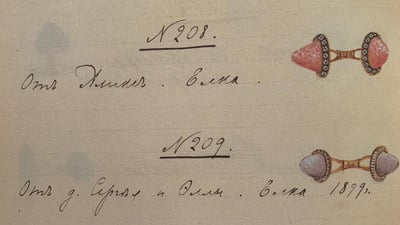 N 208.
Отъ Аликсъ. Елка.
N 209.
Отъ д. Сергѣя и Эллы. Елка 1899г.